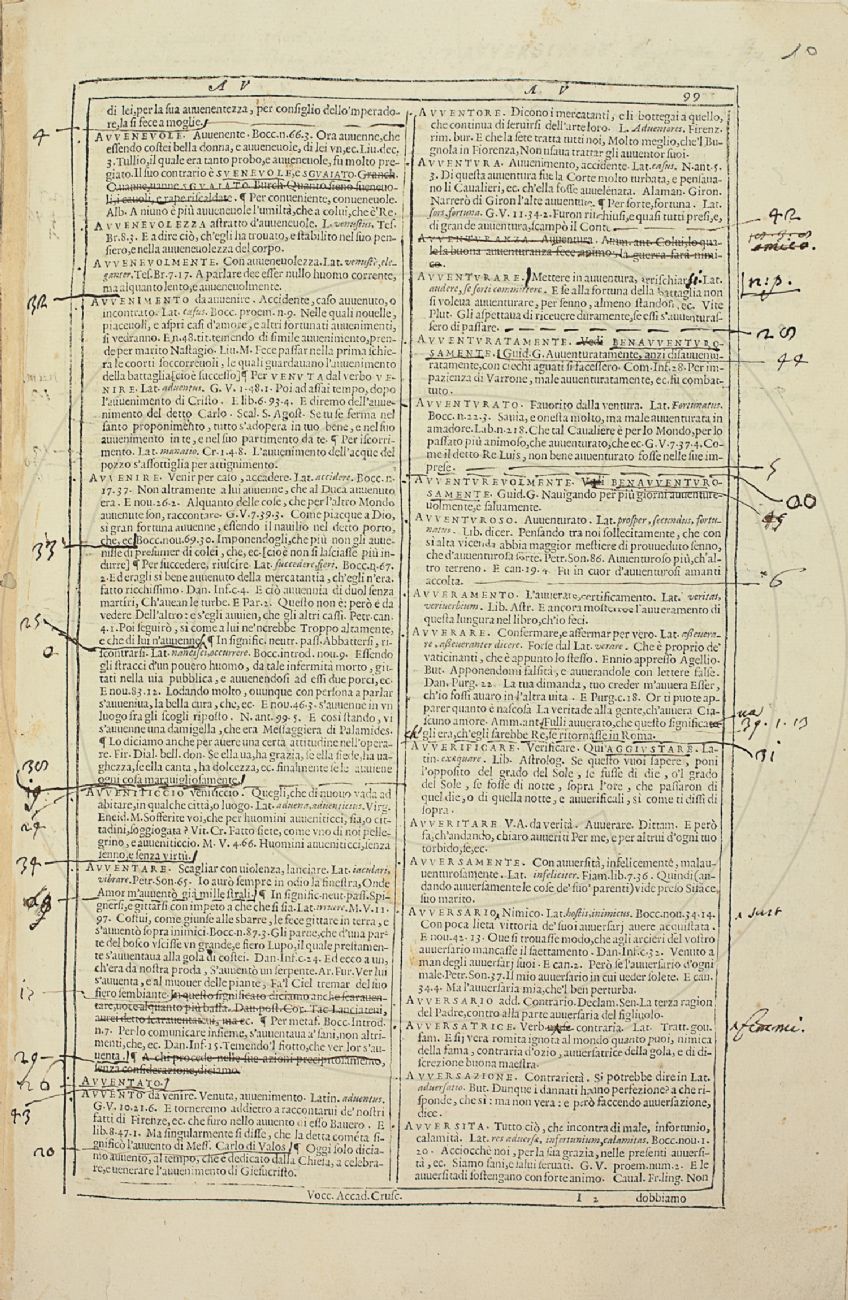 10
A V
A V
99
di lei, per la sua auuenentezza, per consiglio dello'mperado-
re, la si fece a moglie.
AVVENEVOLE. Auuenente. Bocc.n.66.3. Ora auuenne, che
essendo costei bella donna, e auueneuole, di lei vn, ec. Liu.dec.
3. Tullio, il quale era tanto probo, e auueneuole, fu molto pre-
giato. Il suo contrario è SVENEVOLE, e SGVAIATO. Granch.
¶ Per conueniente, conueneuole.
Alb. A niuno è più auueneuole l'umiltà, che a colui, che è 'Re.
AVVENEVOLEZZA astratto d'auueneuole. L. venustus. Tes.
Br.8.3. E a dire ciò, ch'egli ha trouato, e stabilito nel suo pen-
siero, e nella auueneuolezza del corpo.
AVVENEVOLMENTE. Con auueneuolezza. Lat. venustè, ele-
ganter. Tes. Br.7.17. A parlare dee esser nullo huomo corrente,
ma alquanto lento, e auueneuolmente.
AVVENIMENTO da auuenire. Accidente, caso auuenuto, o
incontrato. Lat. casus. Bocc. proem.n.9. Nelle quali nouelle,
piaceuoli, e aspri casi d'amore, e altri fortunati auuenimenti,
si vedranno. E n.48.tit. temendo di simile auuenimento, pren-
de per marito Nastagio. Liu.M. Fece passar nella prima schie-
ra le coorti soccorreuoli, le quali guardauano l'auuenimento
della battaglia [cioè successo] ¶ Per VENVTA dal verbo VE-
NIRE. Lat. aduentus. G. V. 1.48.1. Poi ad assai tempo, dopo
l'auuenimento di Cristo. E lib.6.93.4. E diremo dell'auue-
nimento del detto Carlo. Scal. S. Agost. Se tu se ferma nel
santo proponimento, tutto s'adopera in tuo bene, e nel suo
auuenimento in te, e nel suo partimento da te. ¶ Per iscorri-
mento. Lat. manatio. Cr.1.4.8. L'auuenimento dell'acque del
pozzo s'assottiglia per attignimento.
AVVENIRE. Venir per caso, accadere. Lat. accidere. Bocc.n.
17.37. Non altramente a lui auuenne, che al Duca auuenuto
era. E nou.26.2. Alquanto delle cose, che per l'altro Mondo
auuenute son, raccontare. G.V.7.39.3. Come piacque a Dio,
si gran fortuna auuenne, essendo il nauilio nel detto porto,
che, ec. Bocc.nou.69.30. Imponendogli, che più non gli auue-
nisse di presumer di colei, che, ec. [cioè non si lasciasse più in-
durre] ¶ Per succedere, riuscire. Lat. succedere, fieri. Bocc.n.67.
2. Ed eragli sì bene auuenuto della mercatantia, ch'egli n'era
fatto ricchissimo. Dan. Inf.c.4. E ciò auuenia di duol senza
martiri, Ch'auean le turbe. E Par.2. Questo non è: però è da
vedere Dell'altro: e s'egli auuien, che gli altri cassi. Petr.can.
4.1. Poi seguirò, sì come a lui ne'ncrebbe Troppo altamente,
e che di lui n'auuenne. ¶ In signific. neutr. pass. Abbattersi, ri-
scontrarsi. Lat. nancisci, occurrere. Bocc.introd.nou.9. Essendo
gli stracci d'un pouero huomo, da tale infermità morto, git-
tati nella uia publica, e auuenendosi ad essi due porci, ec.
E nou.83.12. Lodando molto, ouunque con persona a parlar
s'auueniua, la bella cura, che, ec. E nou.46.3. s'auuenne in vn
luogo fra gli scogli riposto. N.ant.99.5. E così stando, vi
s'auuenne una damigella, che era Messaggiera di Palamides.
¶ Lo diciamo anche per auere una certa attitudine nell'opera-
re. Fir. Dial. bell. don. Se ella ua, ha grazia, se ella siede, ha ua-
ghezza, se ella canta, ha dolcezza, ec. finalmente se le auuiene
ogni cosa marauigliosamente.
AVVENITICCIO veniticcio. Quegli, che di nuouo vada ad
abitare, in qualche città, o luogo. Lat. aduena, aduentitius. Virg.
Eneid. M. Sofferite voi, che per huomini auueniticci, sia, o cit-
tadini, soggiogata? Vit. Cr. Fatto siete, come vno di noi pelle-
grino, e auueniticcio. M.V.4.66. Huomini auueniticci, senza
senno, e senza virtù.
AVVENTARE. Scagliar con uiolenza, lanciare. Lat. iaculari,
vibrare. Petr. Son.65. Io aurò sempre in odio la finestra, Onde
Amor m'auuentò già mille strali. ¶ In signific. neut. pass. Spi-
gnersi, e gittarsi con impeto a che che si sia. Lat. irruere. M.V.11.
97. Costui, come giunse alle sbarre, le fece gittare in terra, e
s'auuentò sopra inimici. Bocc.n.87.3. Gli parue, che d'una par-
te del bosco vscisse vn grande, e fiero Lupo, il quale prestamen-
te s'auuentaua alla gola di costei. Dan. Inf.c.24. Ed ecco a un,
ch'era da nostra proda, S'auuentò un serpente. Ar. Fur. Ver lui
s'auuenta, e al mouer delle piante, Fa'l Ciel tremar del suo
fiero sembiante.
¶ Per metaf. Bocc. Introd.
n.7. Per lo comunicare insieme, s'auuentaua a' sani, non altri-
menti, che, ec. Dan. Inf.15. Temendo'l fiotto, che ver lor s'au-
uenta. ¶ A chi procede nelle sue azioni precipitosamente,
senza considerazione, diciamo.
AVVENTATO.
AVVENTO da venire. Venuta, auuenimento. Latin. aduentus.
G.V.10.21.6. E torneremo addietro a raccontarui de' nostri
fatti di Firenze, ec. che furo nello auuento di esso Bauero. E
lib.8.47.1. Ma singularmente si disse, che la detta cometa si-
gnificò l'auuento di Mess. Carlo di Valos. ¶ Oggi solo dicia-
mo auuento, al tempo, che è dedicato dalla Chiesa, a celebra-
re, e uenerare l'auuenimento di Giesucristo.
AVVENTORE. Dicono i mercatanti, e li bottegai a quello,
che continua di seruirsi dell'arte loro. L. Aduentores. Firenz.
rim. bur. E che la sete tratta tutti noi, Molto meglio, che'l Bu-
gnola in Fiorenza, Non usaua trattar gli auuentor suoi.
AVVENTVRA. Auuenimento, accidente. Lat. casus. N.ant.5.
3. Di questa auuentura fue la Corte molto turbata, e pensaua-
no li Caualieri, ec. ch'ella fosse auuelenata. Alaman. Giron.
Narrerò di Giron l'alte auuenture. ¶ Per sorte, fortuna. Lat.
fors, fortuna. G.V.11.34.2. Furon richiusi, e quasi tutti presi, e,
di grande auuentura, scampò il Conte.
AVVENTVRANZA. Auuentura. Amm. ant. Colui, lo qua-
le la buona auuenturanza fece amico, la guerra farà nimi-
co.
AVVENTVRARE. Mettere in auuentura, arrischiarsi. Lat.
audere, se sorti committere. E se alla fortuna della battaglia non
si voleua auuenturare, per senno, almeno standosi, ec. Vite
Plut. Gli aspettaua di riceuere duramente, se essi s'auuenturas-
sero di passare.
AVVENTVRATAMENTE. Vedi BENAVVENTVRO-
SAMENTE. Guid. G. Auuenturatamente, anzi disauuentu-
ratamente, con ciechi aguati si facessero. Com. Inf.28. Per im-
pazienza di Varrone, male auuenturatamente, ec. fu combat-
tuto.
AVVENTVRATO. Fauorito dalla ventura. Lat. Fortunatus.
Bocc.n.22.3. Sauia, e onesta molto, ma male auuenturata in
amadore. Lab.n.218. Che tal Caualiere è per lo Mondo, per lo
passato più animoso, che auuenturato, che ec. G.V.7.37.4. Co-
me il detto Re Luis, non bene auuenturato fosse nelle sue im-
prese.
AVVENTVREVOLMENTE. Vedi BENAVVENTVRO-
SAMENTE. Guid. G. Nauigando per più giorni auuenture-
uolmente, e saluamente.
AVVENTVROSO. Auuenturato. Lat. prosper, secundus, fortu-
natus. Lib. dicer. Pensando tra noi sollecitamente, che con
sì alta vicenda abbia maggior mestiere di proueduto senno,
che d'auuenturosa sorte. Petr. Son.86. Auuenturoso più, ch'al-
tro terreno. E can.19.4. Fu in cuor d'auuenturosi amanti
accolta.
AVVERAMENTO. L'auuerare, certificamento. Lat. veritas,
veriuerbium. Lib. Astr. E ancora mosterroe l'aueramento di
questa lungura nel libro, ch'io feci.
AVVERARE. Confermare, e affermar per vero. Lat. asseuera-
re, asseueranter dicere. Forse dal Lat. verare. Che è proprio de'
vaticinanti, che è appunto lo stesso. Ennio appresso Agellio.
But. Apponendomi falsità, e auuerandole con lettere false.
Dan. Purg.22. La tua dimanda, tuo creder m'auuera Esser,
ch'io fossi auaro in l'altra uita. E Purg.c.18. Or ti puote ap-
parer quanto è nascosa La veritade alla gente, ch'auuera Cia-
scuno amore. Amm. ant. Fulli auuerato, che questo significaua
ch'gli era, ch'egli sarebbe Re, se ritornasse in Roma.
AVVERIFICARE. Verificare. Qui AGGIVSTARE. La-
tin. exæquare. Lib. Astrolog. Se questo vuoi sapere, poni
l'opposito del grado del Sole, se fusse di die, o'l grado
del Sole, se fosse di notte, sopra l'ore, che passaron di
quel die, o di quella notte, e auuerificali, sì come ti dissi di
sopra.
AVVERITARE V.A. da verità. Auuerare. Dittam. E però
fa, ch'andando, chiaro auueriti Per me, e per altrui d'ogni tuo
torbido, se, ec.
AVVERSAMENTE. Con auuersità, infelicemente, malau-
uenturosamente. Lat. infeliciter. Fiam. lib.7.36. Quindi (an-
dando auuersamente le cose de' suo' parenti) vide preso Siface,
suo marito.
AVVERSARIO. Nimico. Lat. hostis, inimicus. Bocc.nou.34.14.
Con poca lieta vittoria de' suoi auuersarj auere acquistata.
E nou.42.13. Oue si trouasse modo, che agli arcieri del vostro
auuersario mancasse il saettamento. Dan. Inf.c.32. Venuto a
man degli auuersarj suoi. E can.2. Però se l'auuersario d'ogni
male. Petr. Son.37. Il mio auuersario in cui ueder solete. E can.
34.4. Ma l'auuersaria mia, che'l ben perturba.
AVVERSARIO add. Contrario. Declam. Sen. La terza ragion
del Padre, contro alla parte auuersaria del figliuolo.
AVVERSATRICE. Verb. contraria. Lat. Tratt. gou.
fam. E si j vera romita ignota al mondo quanto puoi, nimica
della fama, contraria d'ozio, auuersatrice della gola, e di di-
screzione buona maestra.
AVVERSAZIONE. Contrarietà. Si potrebbe dire in Lat.
aduersatio. But. Dunque i dannati hanno perfezione? a che ri-
sponde, che sì: ma non vera: e però faccendo auuersazione,
dice.
AVVERSITA. Tutto ciò, che incontra di male, infortunio,
calamità. Lat. res aduersæ, infortunium, calamitas. Bocc.nou.1.
20. Acciocchè noi, per la sua grazia, nelle presenti auuersi-
tà, ec. Siamo sani, e salui seruati. G.V. proem.num.2. E le
auuersitadi sostengano con forte animo. Caual. Fr. ling. Non
Vocc. Accad. Crusc.
I 2
dobbiamo
4
32
33
25
0
24
34
17
29
26
43
20
42
amico.
n: p.
28
44
5
00
45
6
39.1.13
31